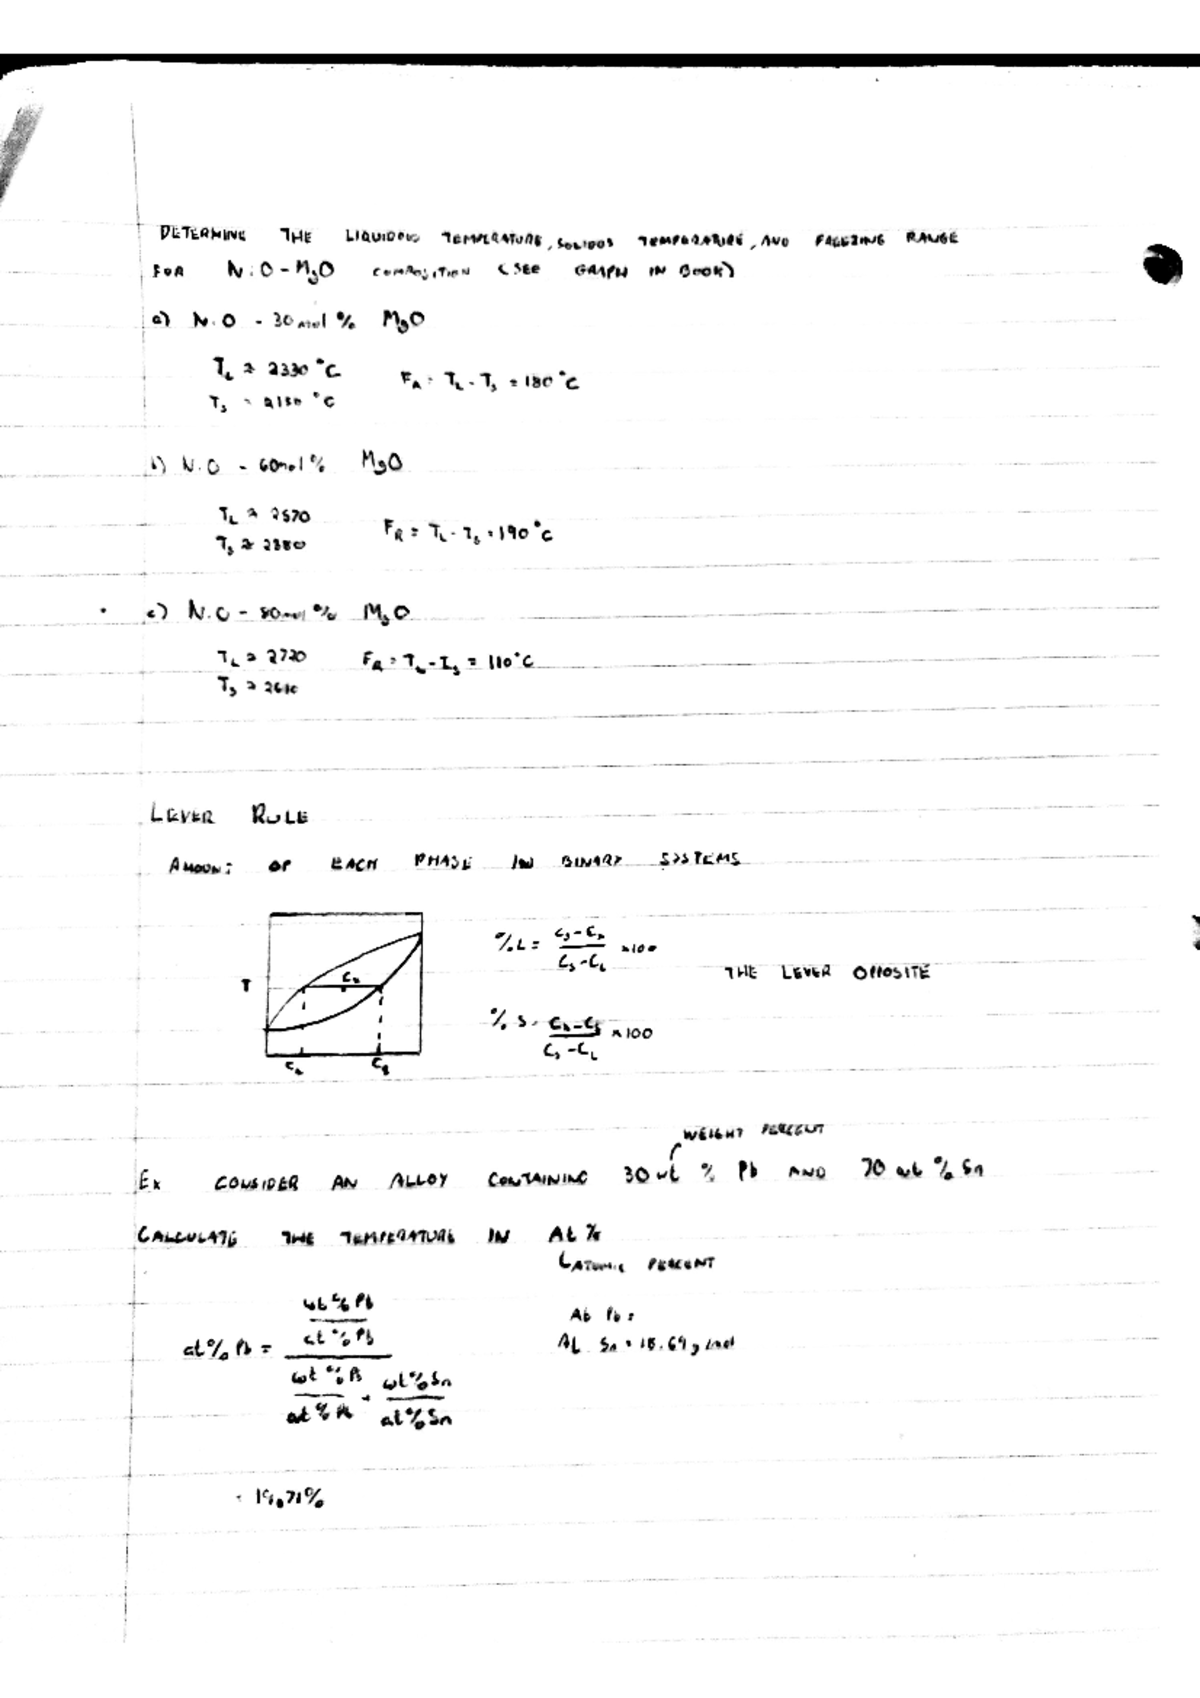 DETERMINE THE LIQUIDOUS TEMPERATURE, SOLIDOUS TEMPERATURE, AND FREEZING RANGE
FOR NiO-MgO COMPOSITION (SEE GRAPH IN BOOK)
a) NiO - 30 mol % MgO
TL ≈ 2330 °C
FR = TL - TS = 180 °C
TS ≈ 2150 °C
b) NiO - 60mol % MgO
TL ≈ 2570
FR = TL - TS = 190 °C
TS ≈ 2380
c) NiO - 80mol % MgO
TL ≈ 2720
FR = TL - TS = 110°C
TS ≈ 2610
LEVER RULE
AMOUNT OF EACH PHASE IN BINARY SYSTEMS
%L = Cs-Cx / Cs-CL ×100
THE LEVER OPPOSITE
T
% S = / Cs-CL ×100
WEIGHT PERCENT
EX CONSIDER AN ALLOY CONTAINING 30 wt % Pb AND 70 wt % Sn
CALCULATE THE TEMPERATURE IN At %
ATOMIC PERCENT
at% Pb = wt % Pb / at % Pb
wt % Pb / at % Pb + wt % Sn / at % Sn
At Pb =
At Sn = g/mol